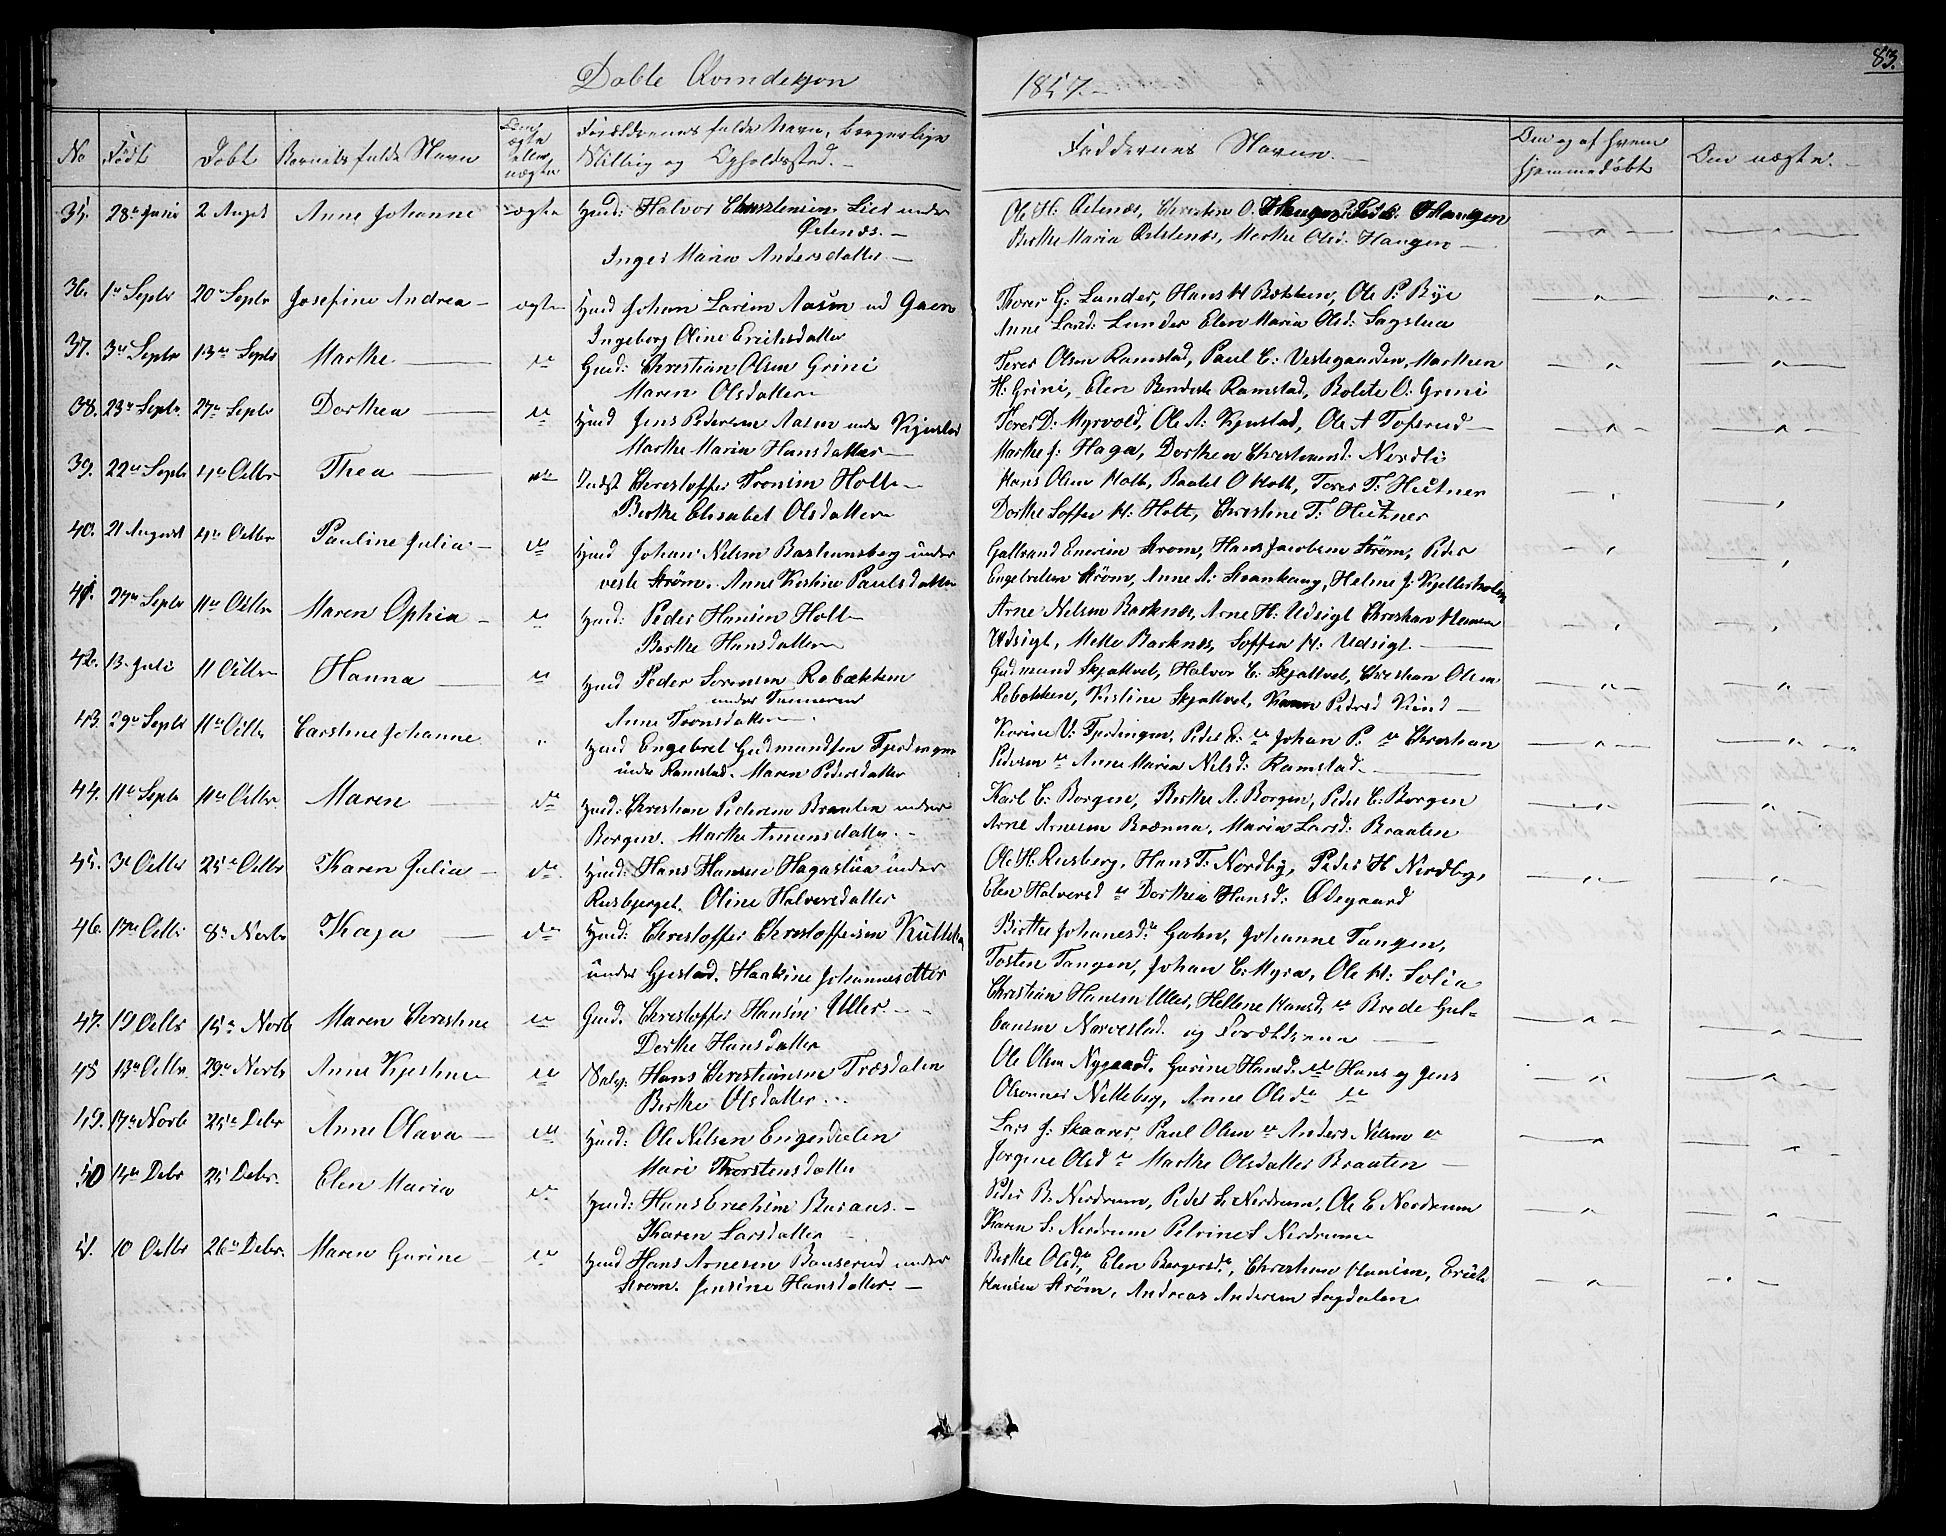 83.
Døbte Qvindekjøn 1857.-
No Født Døbt Barnets fulde Navn Om ægte eller uægte Forældrenes fulde Navn, borgerlige Stilling og Opholdssted.- Faddernes Navne.- Om og af hvem hjemmedøbt Om uægte.-
35. 28de Juni 2 Augst Anne Johanne ægte Huusd: Halvor Christensen Lier under Østenæs.-
Inger Maria Andersdatter.-
Ole H: Østenæs, Christen O. Haugen, Peder Haugen
Berthe Maria Østenæs, Marthe Olsd: Haugen-
36. 1ste Septbr 20de Septbr Josefine Andrea- ægte Huusd Johan Larsen Aasen ud Gaen
Ingeborg Oline Erichsdatter
Thorer G: Lunder, Hans H Bækken, Ole P: Bye
Anne Larsd: Lunder Elen Maria Olsd: Sagstua
37. 3de Septbr 13de Septbr Marthe do Gmd: Christian Olsen Grini
Maren Olsdatter
Torer Olsen Ramstad, Paul C: Vestgaarden, Marthea
H: Grini, Elen Bendicte Ramstad, Bolete O: Grini
38. 23de Septbr. 27de Septbr Dorthea do Huusd Jens Pedersen Aasen under Kjenstad
Marthe Maria Hansdatter-
Torer D: Myrvold, Ole A: Kjenstad, Ole A Tofsrud-
Marthe J: Haga, Dorthea Christensd: Nordli
39. 22de Septbr 4de Octbr Thea do Indst Christoffer Tronsen Holt-
Berthe Elisabet Olsdatter
Hans Olsen Holt, Badel O Holt, Torer T: Hutner
Dorthe Soffie H: Holt, Christine T: Hutner
40. 21 August 4de Octbr Pauline Julia- do Huusd Johan Nilsen Bastiansberg under
veste Strøm. Anne Kistine Paulsdatter
Gulbrand Enersen Strøm, Hans Jacobsen Strøm, Peder
Engebretsen Strøm, Anne A: Svankaug, Helene J: Kjellerholen
41. 27de Septbr 11te Octbr Maren Ophia- do Huusd: Peder Hansen Holt-
Berthe Hansdatter
Arne Nilsen Barknæs, Arne H: Udsigt Christian Hansen
Udsigt, Mette Barknæs, Soffie H: Udsigt.
42. 13 Juli 11 Octbr Hanna do Huusd Peder Sorensen Robækken
under Tunnerud
Anne Tronsdatter
Gudmund Skjatvet, Halvor C: Skjatvet, Christian Olsen
Robækken, Kistine Skjatvet, Karen Pedersd Kind-
43. 29de Septbr 11te Octbr Carstine Johanne " Huusd Engebret Gudmundsen Fjerdingen
under Ramstad. Maren Pedersdatter
Korine V: Fjerdingen, Peder E: do Johan P: do Christian
Pedersen do Anne Maria Nilsd: Ramstad.
44. 11te Septbr 11te Octbr Maren do Huusd: Christian Pedersen Braaten under
Borgen. Marthe Amunsdatter.-
Karl C: Borgen, Berthe A: Borgen, Peder C: Borgen
Arne Arnesen Brænna, Maria Larsd: Braaten
45. 3de Octbr 25de Octbr Karen Julia- do Huusd: Hans Hansen Hagastua under
Rusbjerget. Oline Halvorsdatter
Ole H: Rusberg, Hans T: Nordby, Peder H Nordby,
Elen Halvorsd do Dorthea Hansd: Ødegaard
46. 17de Octbr 8de Novbr Kaja do Huusd: Christoffer Christoffersen Kulsta
under Gjestad. Haakine Johannesdtter
Birthe Johanesd: Gahn, Johanne Tangen,
Tosten Tangen, Johan C: Myra, Ole H: Solia
47. 19 Octbr 15de Novb Maren Christine do Gmd. Christoffer Hansen Uller.-
Dorthe Hansdatter
Christian Hansen Uller, Hellene Hansd, do Brede Gul-
bansen Narvestad. og Forældrene
48 13de Octbr. 29de Novbr Anne Kjerstine do Selv. Hans Christiansen Træsdalen
Berthe Olsdatter
Ole Olsen Nygaard. Gurine Hansd. do Hans og Jens
Olsønner Nilleberg, Anne Olsd do
49. 17de Novb 25de Decbr Anne Olava- do Huusd: Ole Nilsen Engerdalen
Mari Thorstensdatter
Lars J: Skaarer, Paul Olsen do Anders Nilsen do
Jorgine Olsd do Marthe Olsdatter Braaten-
50 15de Decbr 25 Decbr. Elen Maria do Huusd: Hans Erichsen Buraas.-
Karen Larsdatter
Peder B. Nordrum, Peder L: Nordrum, Ole E Nordrum
Karen S: Nordrum Petrine S Nordrum
51. 10 Octbr 26de Decbr. Maren Gurine- do Huusd Hans Arnesen Bauserud under
Strøm. Jensine Hansdatter.-
Berthe Olsd, Elen Borgersd, Christian Hansen, Erich
Hansen Strøm, Andreas Andersen Sagdalen